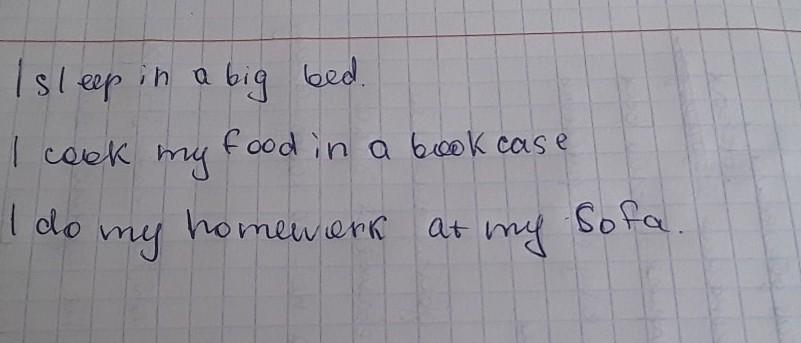 I sleep in a big bed.
I cook my food in a bookcase
I do my homework at my sofa.